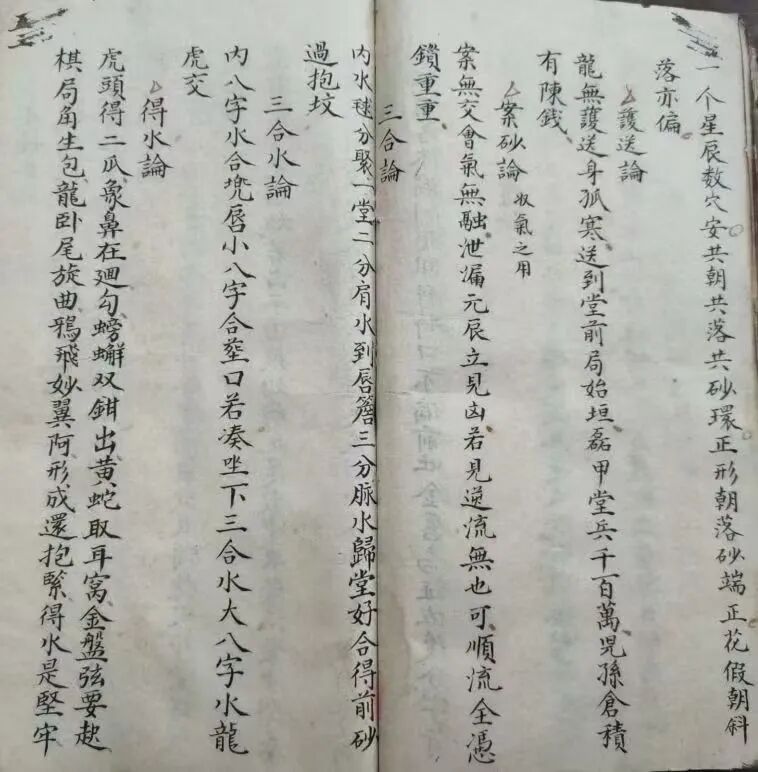 一个星辰数穴安共朝共落共砂環正形朝落砂端正花假朝斜
落亦偏
護送論
龍無護送身孤寒送到堂前局始垣磊甲堂兵千百萬児孫倉積
有陳錢
案砂論 収氣之用
案無交會氣無融泄漏元辰立見凶若見逆流無也可順流全憑
鎖重重
三合論
内水毬分聚一堂二分肩水到唇簷三分脈水歸堂好合得前砂
過抱坟
三合水論
内八字水合兠唇小八字合茔口若凑坐下三合水大八字水龍
虎交
得水論
虎頭得二瓜象鼻在廻勾螃蠏双鉗出黄蛇取耳窩金盤弦要起
棋局角生包龍卧尾旋曲鴉飛妙翼阿形成還抱緊得水是堅牢